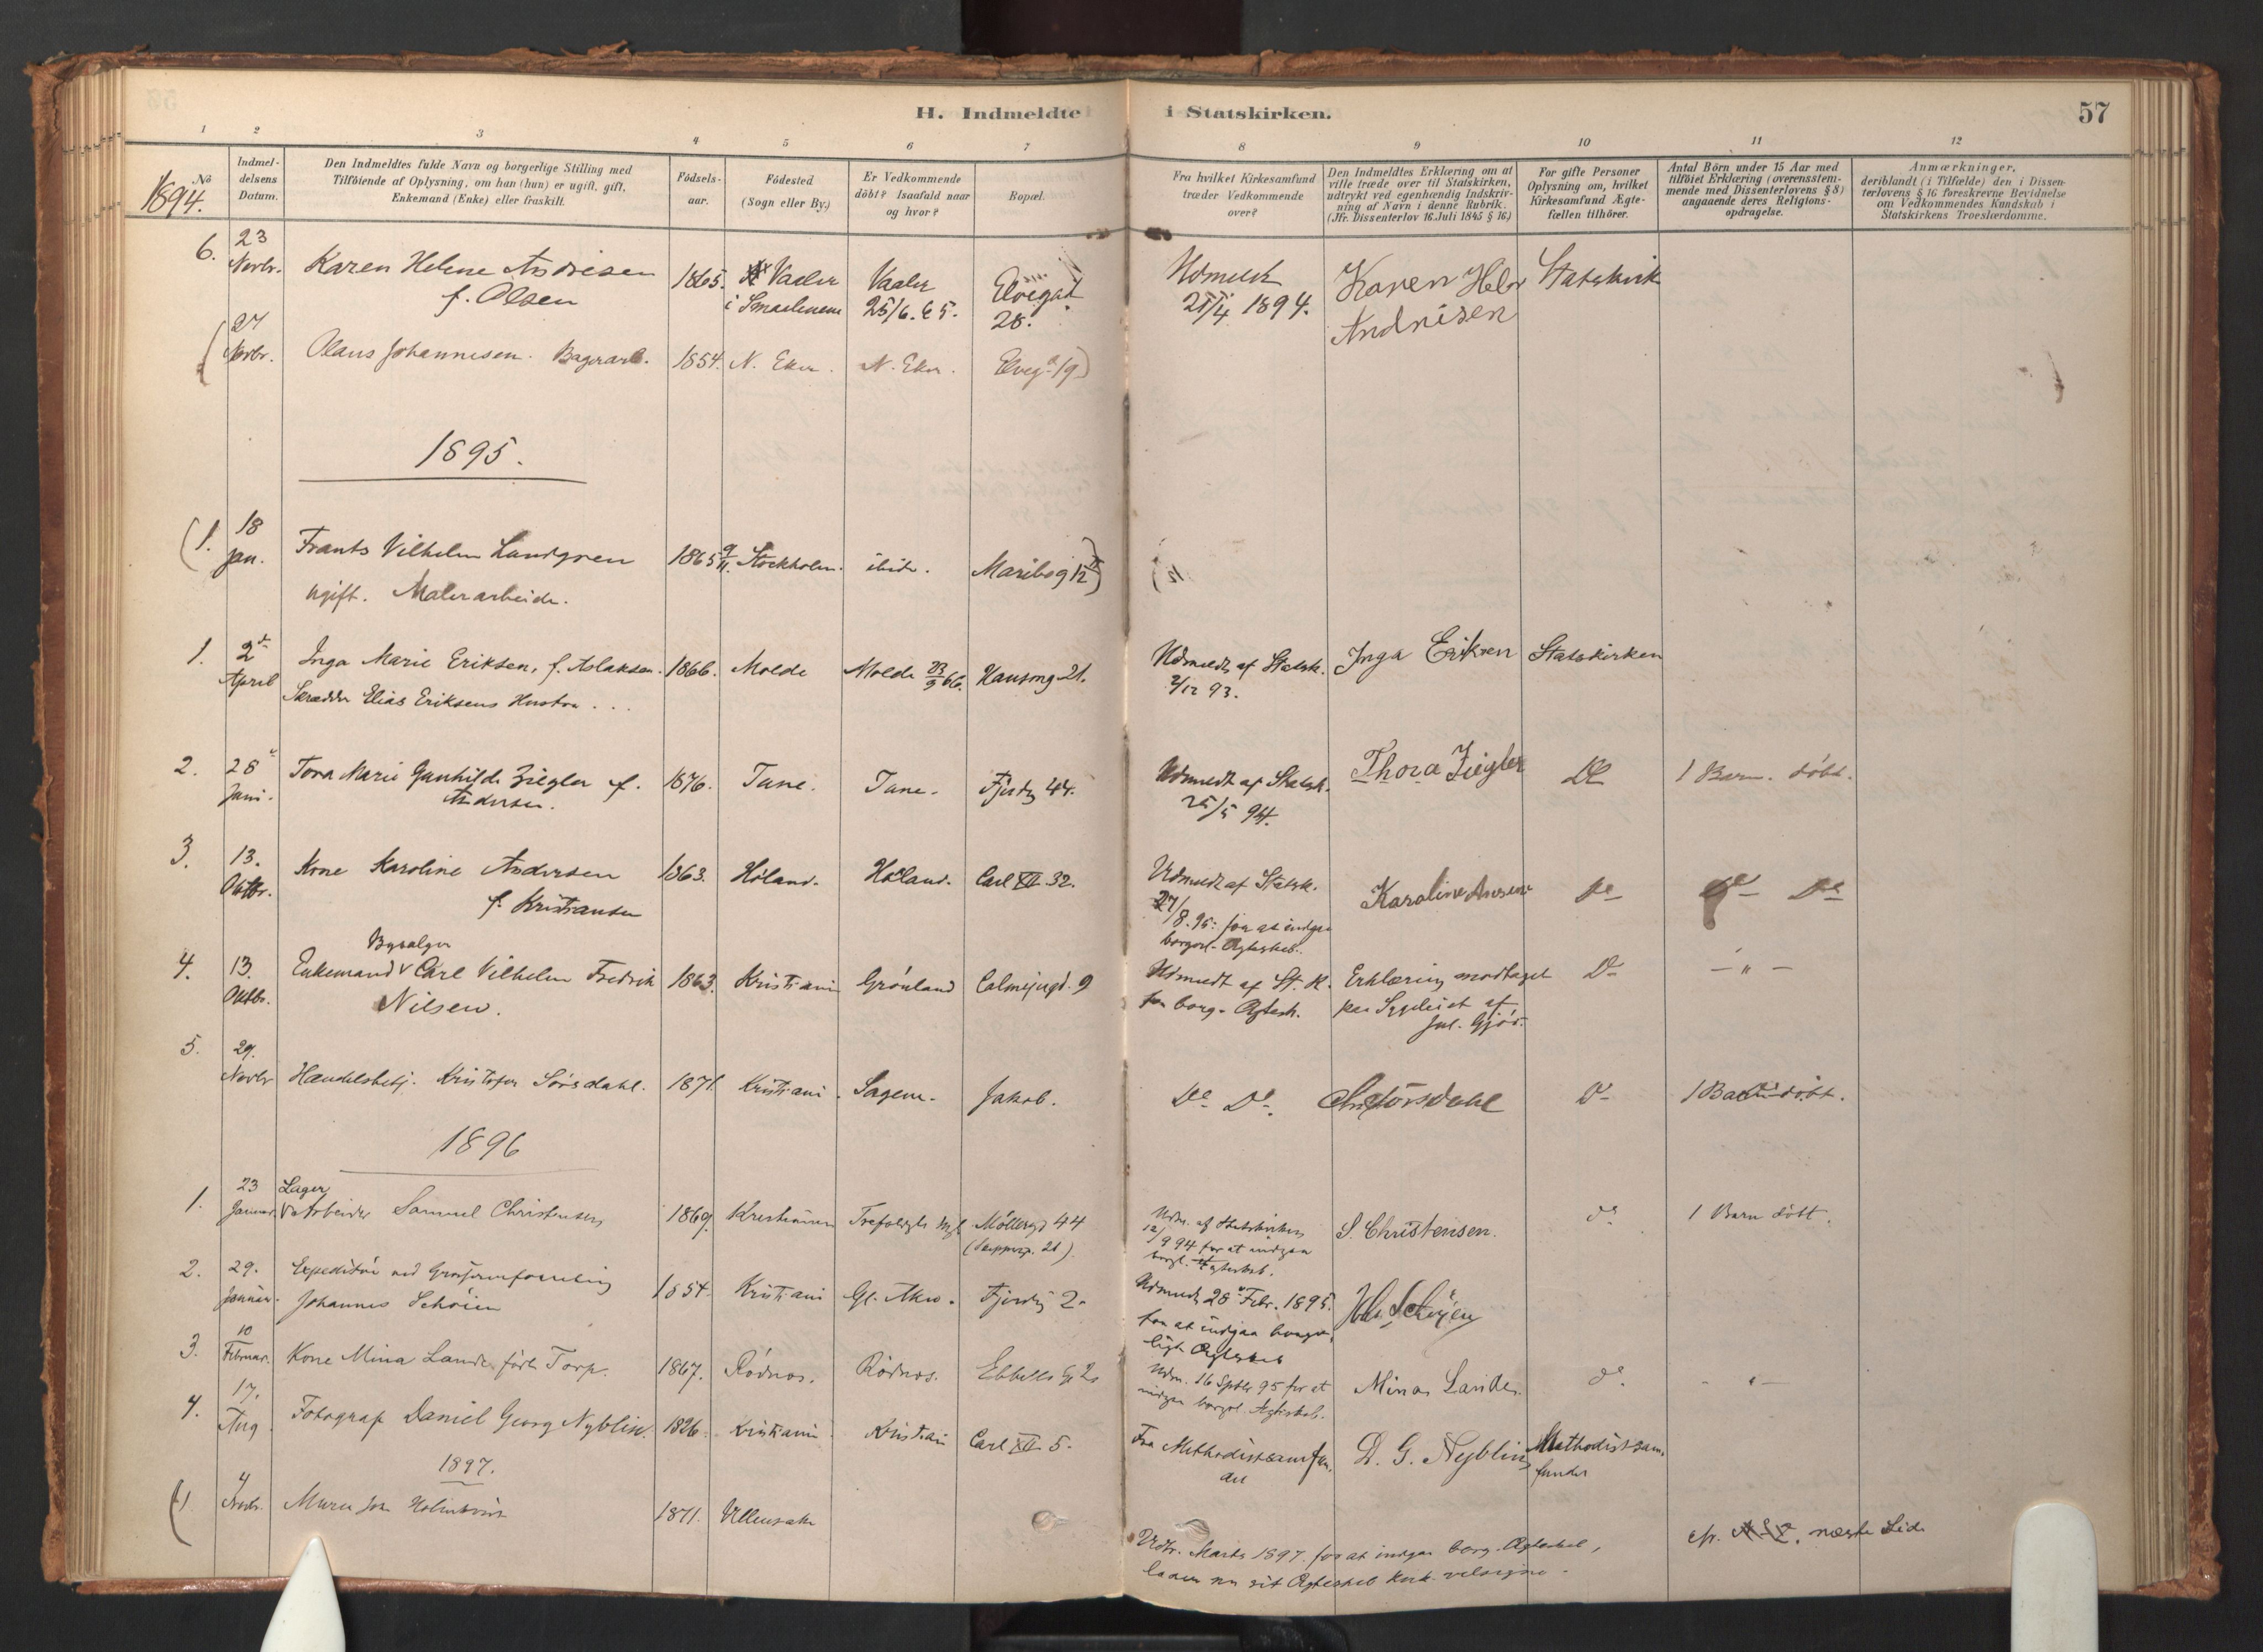 H. Indmeldte i Statskirken.
57
1 2 3 4 5 6 7 8 9 10 11 12
No
1894.
Indmeldelsens Datum.
Den Indmeldtes fulde Navn og borgerlige Stilling med
Tilföiende af Oplysning, om han (hun) er ugift, gift,
Enkemand (Enke) eller fraskilt.
Födselsaar.
Födested
(Sogn eller By.)
Er Vedkommende
döbt? Isaafald naar
og hvor?
Bopæl.
Fra hvilket Kirkesamfund
træder Vedkommende
over?
Den Indmeldtes Erklæring om at
ville træde over til Statskirken,
udtrykt ved egenhændig Indskrivning af Navn i denne Rubrik.
(Jfr. Dissenterlov 16. Juli 1845 § 16)
For gifte Personer
Oplysning om, hvilket
Kirkesamfund Ægtefællen tilhörer.
Antal Börn under 15 Aar med
tilföiet Erklæring (overensstemmende med Dissenterlovens § 8)
angaaende deres Religionsopdragelse.
Anmærkninger,
deriblandt (i Tilfælde) den i Dissenterlovens § 16 foreskrevne Bevidnelse
om Vedkommendes Kundskab i
Statskirkens Troeslærdomme.
6. 23 Novbr. Karen Helene Andresen f. Olsen 1865. Vaaler i Smaalenene Vaaler 25/6. 65. Elvegad 28. Udmeldt 25/4 1894. Karen Helen Andrisen Statskirk
27 Novbr. Olaus Johannesen. Bagerarb. 1854. N. Eker. N. Eker. Elveg. 19)
1895.
(1. 18 Jan. Frants Vilhelm Lundgren 1865 9/11. Stockholm. ibid. Maribog 12)
ugift. Malerarbeide.
1. 2 April Inga Marie Eriksen, f. Aslaksen. 1866. Molde Molde 66. Hausmg 21. Udmeldt af Statsk. 2/12 93. Inga Eriksen Statskirken
Skrædder Elias Eriksens Hustru . . .
2. 28 Juni. Tora Marie Gunhilde Ziegler f. Andersen. 1876. Tune. Tune. Fjerdg 44. Udmeldt af Statsk. 25/5 94. Thora Ziegler Do 1 Barn. döbt.
3. 13. Oktbr. Kone Karoline Andersen f. Kristiansen 1863. Höland. Höland. Carl XII 32. Udmeldt af Statsk. 27/8. 95: for at indgaa borgerl. Ægteskab. Karoline Do Do Do
4. 13. Oktbr. Enkemand Carl Vilhelm Fredrik Nilsen. 1863. Kristiani Grönland 9 Udmeldt af St. K. for borg. Ægtesk. Erklæring modtaget paa Sygeleiet af Jul. Gjör. Do — " —
5. 29. Novbr Handelsbetj. Kristofer Sörsdahl. 1871. Kristiani. Sagene. Jakob. Do Do. Chr Sörsdahl Do 1 Barn döbt.
1896
1. 23 Januar. Lager Arbeider Samuel Christensen 1869. Kristiania Möllergd 44 Udm. af Statskirken 12/9 94 for at indgaa borgl. Ægteskab. S. Christensen. do 1 Barn döbt.
2. 29. Januar. Expeditör ved Johannes Schöien 1854. Kristiani Gl. Aker. Fjerdg 2. Udmeldt 28 Febr. 1895. for at indgaa borgerligt Ægteskab
3. 10 Februar. Kone Mina Lande född Torp. 1867. Rödnes. Rödnes. Udm. 16 Sptbr 95 for at indgaa borgerl. Ægteskab. Mina Lande. do. - " -
4. 17. Aug Fotograf Daniel Georg Nyblin. 1826. Kristiania Kristiani Carl XII 5. Fra Methodistsamfundet D. G. Nyblin Methodistsamfundet
1897.
(1. 4 Novbr. 1871. Ullensaker Udtr. Marts 1897. for at indgaa borg. Ægteskab, lader nu sit Ægteskab kirk. velsigne. cfr. næste Side